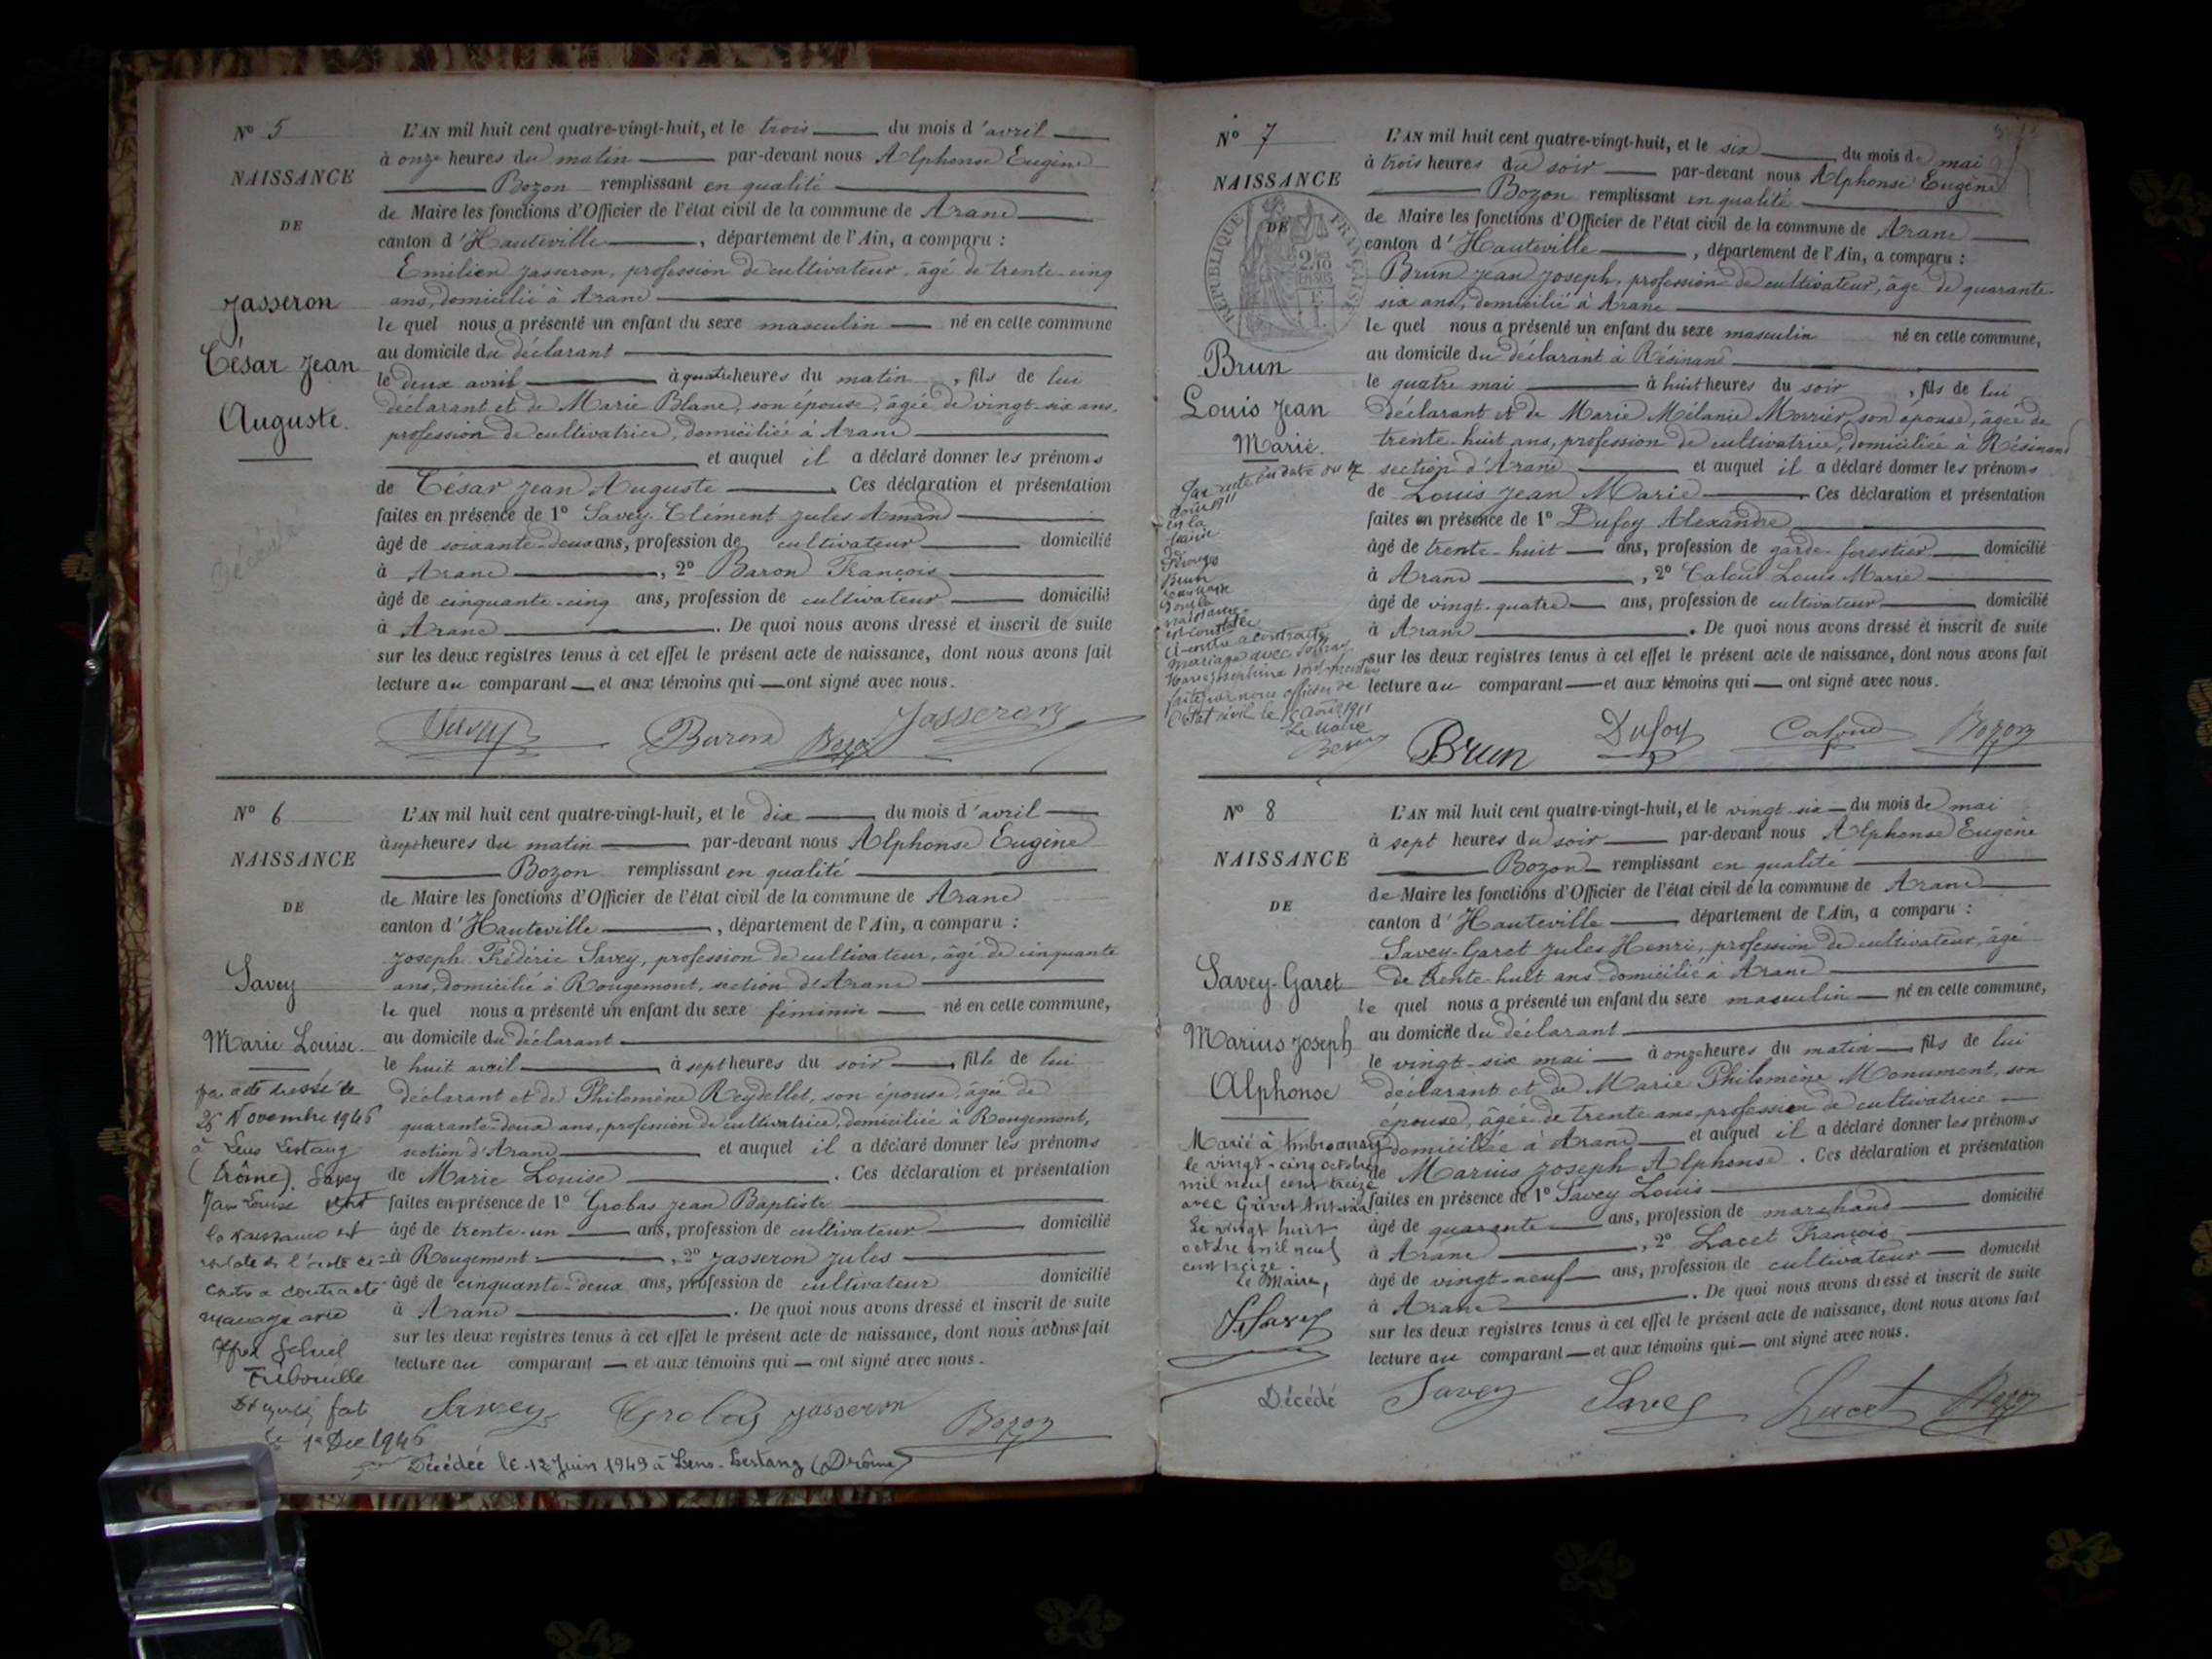 N° 5
NAISSANCE
DE
Jasseron
César Jean
Auguste.
Décédé
L'AN mil huit cent quatre-vingt-huit, et le trois du mois d'avril
à onze heures du matin par-devant nous Alphonse Eugène
Bozon remplissant en qualité
de Maire les fonctions d'Officier de l'état civil de la commune de Aranc
canton d'Hauteville, département de l'Ain, a comparu :
Emilien Jasseron, profession de cultivateur, âgé de trente-cinq
ans, domicilié à Aranc
le quel nous a présenté un enfant du sexe masculin né en cette commune
au domicile du déclarant
le deux avril à quatre heures du matin, fils de lui
déclarant et de Marie Blanc, son épouse, âgée de vingt-six ans,
profession de cultivatrice, domiciliée à Aranc
et auquel il a déclaré donner les prénoms
de César Jean Auguste. Ces déclaration et présentation
faites en présence de 1° Savey-Clément Jules Amand
âgé de soixante-deux ans, profession de cultivateur domicilié
à Aranc, 2° Baron François
âgé de cinquante-cinq ans, profession de cultivateur domicilié
à Aranc. De quoi nous avons dressé et inscrit de suite
sur les deux registres tenus à cet effet le présent acte de naissance, dont nous avons fait
lecture au comparant et aux témoins qui ont signé avec nous.
Savey Baron Bozon Jasseron
N° 6
NAISSANCE
DE
Savey
Marie Louise.
par acte dressé le
26 Novembre 1946
à Lens Lestang
(Drôme). Savey
Marie Louise dont
la naissance est
relatée de l'acte ci-
contre a contracté
mariage avec
Alfred
Tribouille
fait
le 1er Dec 1946
L'AN mil huit cent quatre-vingt-huit, et le dix du mois d'avril
à sept heures du matin par-devant nous Alphonse Eugène
Bozon remplissant en qualité
de Maire les fonctions d'Officier de l'état civil de la commune de Aranc
canton d'Hauteville, département de l'Ain, a comparu :
Joseph Frédéric Savey, profession de cultivateur, âgé de cinquante
ans, domicilié à Rougemont, section d'Aranc
le quel nous a présenté un enfant du sexe féminin né en cette commune,
au domicile du déclarant
le huit avril à sept heures du soir, fille de lui
déclarant et de Philomène Reydellet, son épouse, âgée de
quarante-deux ans, profession de cultivatrice, domiciliée à Rougemont,
section d'Aranc et auquel il a déclaré donner les prénoms
de Marie Louise. Ces déclaration et présentation
faites en présence de 1° Grobas Jean Baptiste
âgé de trente-un ans, profession de cultivateur domicilié
à Rougemont, 2° Jasseron Jules
âgé de cinquante-deux ans, profession de cultivateur domicilié
à Aranc. De quoi nous avons dressé et inscrit de suite
sur les deux registres tenus à cet effet le présent acte de naissance, dont nous avons fait
lecture au comparant et aux témoins qui ont signé avec nous.
Savey Grobas Jasseron Bozon
Décédée le 12 Juin 1949 à Lens-Lestang (Drôme)
N° 7
NAISSANCE
DE
RÉPUBLIQUE FRANÇAISE
Brun
Louis Jean
Marie.
Par acte en date du 17
août 1911
en la
mairie
de
Brun
Jean Marie
dont la
naissance
est constatée
ci-contre a contracté
mariage avec
Marie Joséphine
faite par nous officier de
l'état civil le 18 août 1911
Le Maire
L'AN mil huit cent quatre-vingt-huit, et le six du mois de mai
à trois heures du soir par-devant nous Alphonse Eugène
Bozon remplissant en qualité
de Maire les fonctions d'Officier de l'état civil de la commune de Aranc
canton d'Hauteville, département de l'Ain, a comparu :
Brun Jean Joseph, profession de cultivateur, âgé de quarante-
six ans, domicilié à Aranc
le quel nous a présenté un enfant du sexe masculin né en cette commune,
au domicile du déclarant à Résinand
le quatre mai à huit heures du soir, fils de lui
déclarant et de Marie Mélanie Morrier, son épouse, âgée de
trente-huit ans, profession de cultivatrice, domiciliée à Résinand
section d'Aranc et auquel il a déclaré donner les prénoms
de Louis Jean Marie. Ces déclaration et présentation
faites en présence de 1° Dufoy Alexandre
âgé de trente-huit ans, profession de garde-forestier domicilié
à Aranc, 2° Caloud Louis Marie
âgé de vingt-quatre ans, profession de cultivateur domicilié
à Aranc. De quoi nous avons dressé et inscrit de suite
sur les deux registres tenus à cet effet le présent acte de naissance, dont nous avons fait
lecture au comparant et aux témoins qui ont signé avec nous.
Brun Dufoy Caloud Bozon
N° 8
NAISSANCE
DE
Savey-Garet
Marius Joseph
Alphonse
Marié à Ambronay
le vingt-cinq octobre
mil neuf cent treize
avec Gravet
Le vingt huit
octobre mil neuf
cent treize.
Le Maire,
Savey
Décédé
L'AN mil huit cent quatre-vingt-huit, et le vingt-six du mois de mai
à sept heures du soir par-devant nous Alphonse Eugène
Bozon remplissant en qualité
de Maire les fonctions d'Officier de l'état civil de la commune de Aranc
canton d'Hauteville département de l'Ain, a comparu :
Savey-Garet Jules Henri, profession de cultivateur, âgé
de trente-huit ans domicilié à Aranc
le quel nous a présenté un enfant du sexe masculin né en cette commune,
au domicile du déclarant
le vingt-six mai à onze heures du matin, fils de lui
déclarant et de Marie Philomène Monument, son
épouse, âgée de trente ans, profession de cultivatrice
domiciliée à Aranc et auquel il a déclaré donner les prénoms
de Marius Joseph Alphonse. Ces déclaration et présentation
faites en présence de 1° Savey Louis
âgé de quarante ans, profession de marchand domicilié
à Aranc, 2° Lacet François
âgé de vingt-neuf ans, profession de cultivateur domicilié
à Aranc. De quoi nous avons dressé et inscrit de suite
sur les deux registres tenus à cet effet le présent acte de naissance, dont nous avons fait
lecture au comparant et aux témoins qui ont signé avec nous.
Savey Savey Lucet Bozon